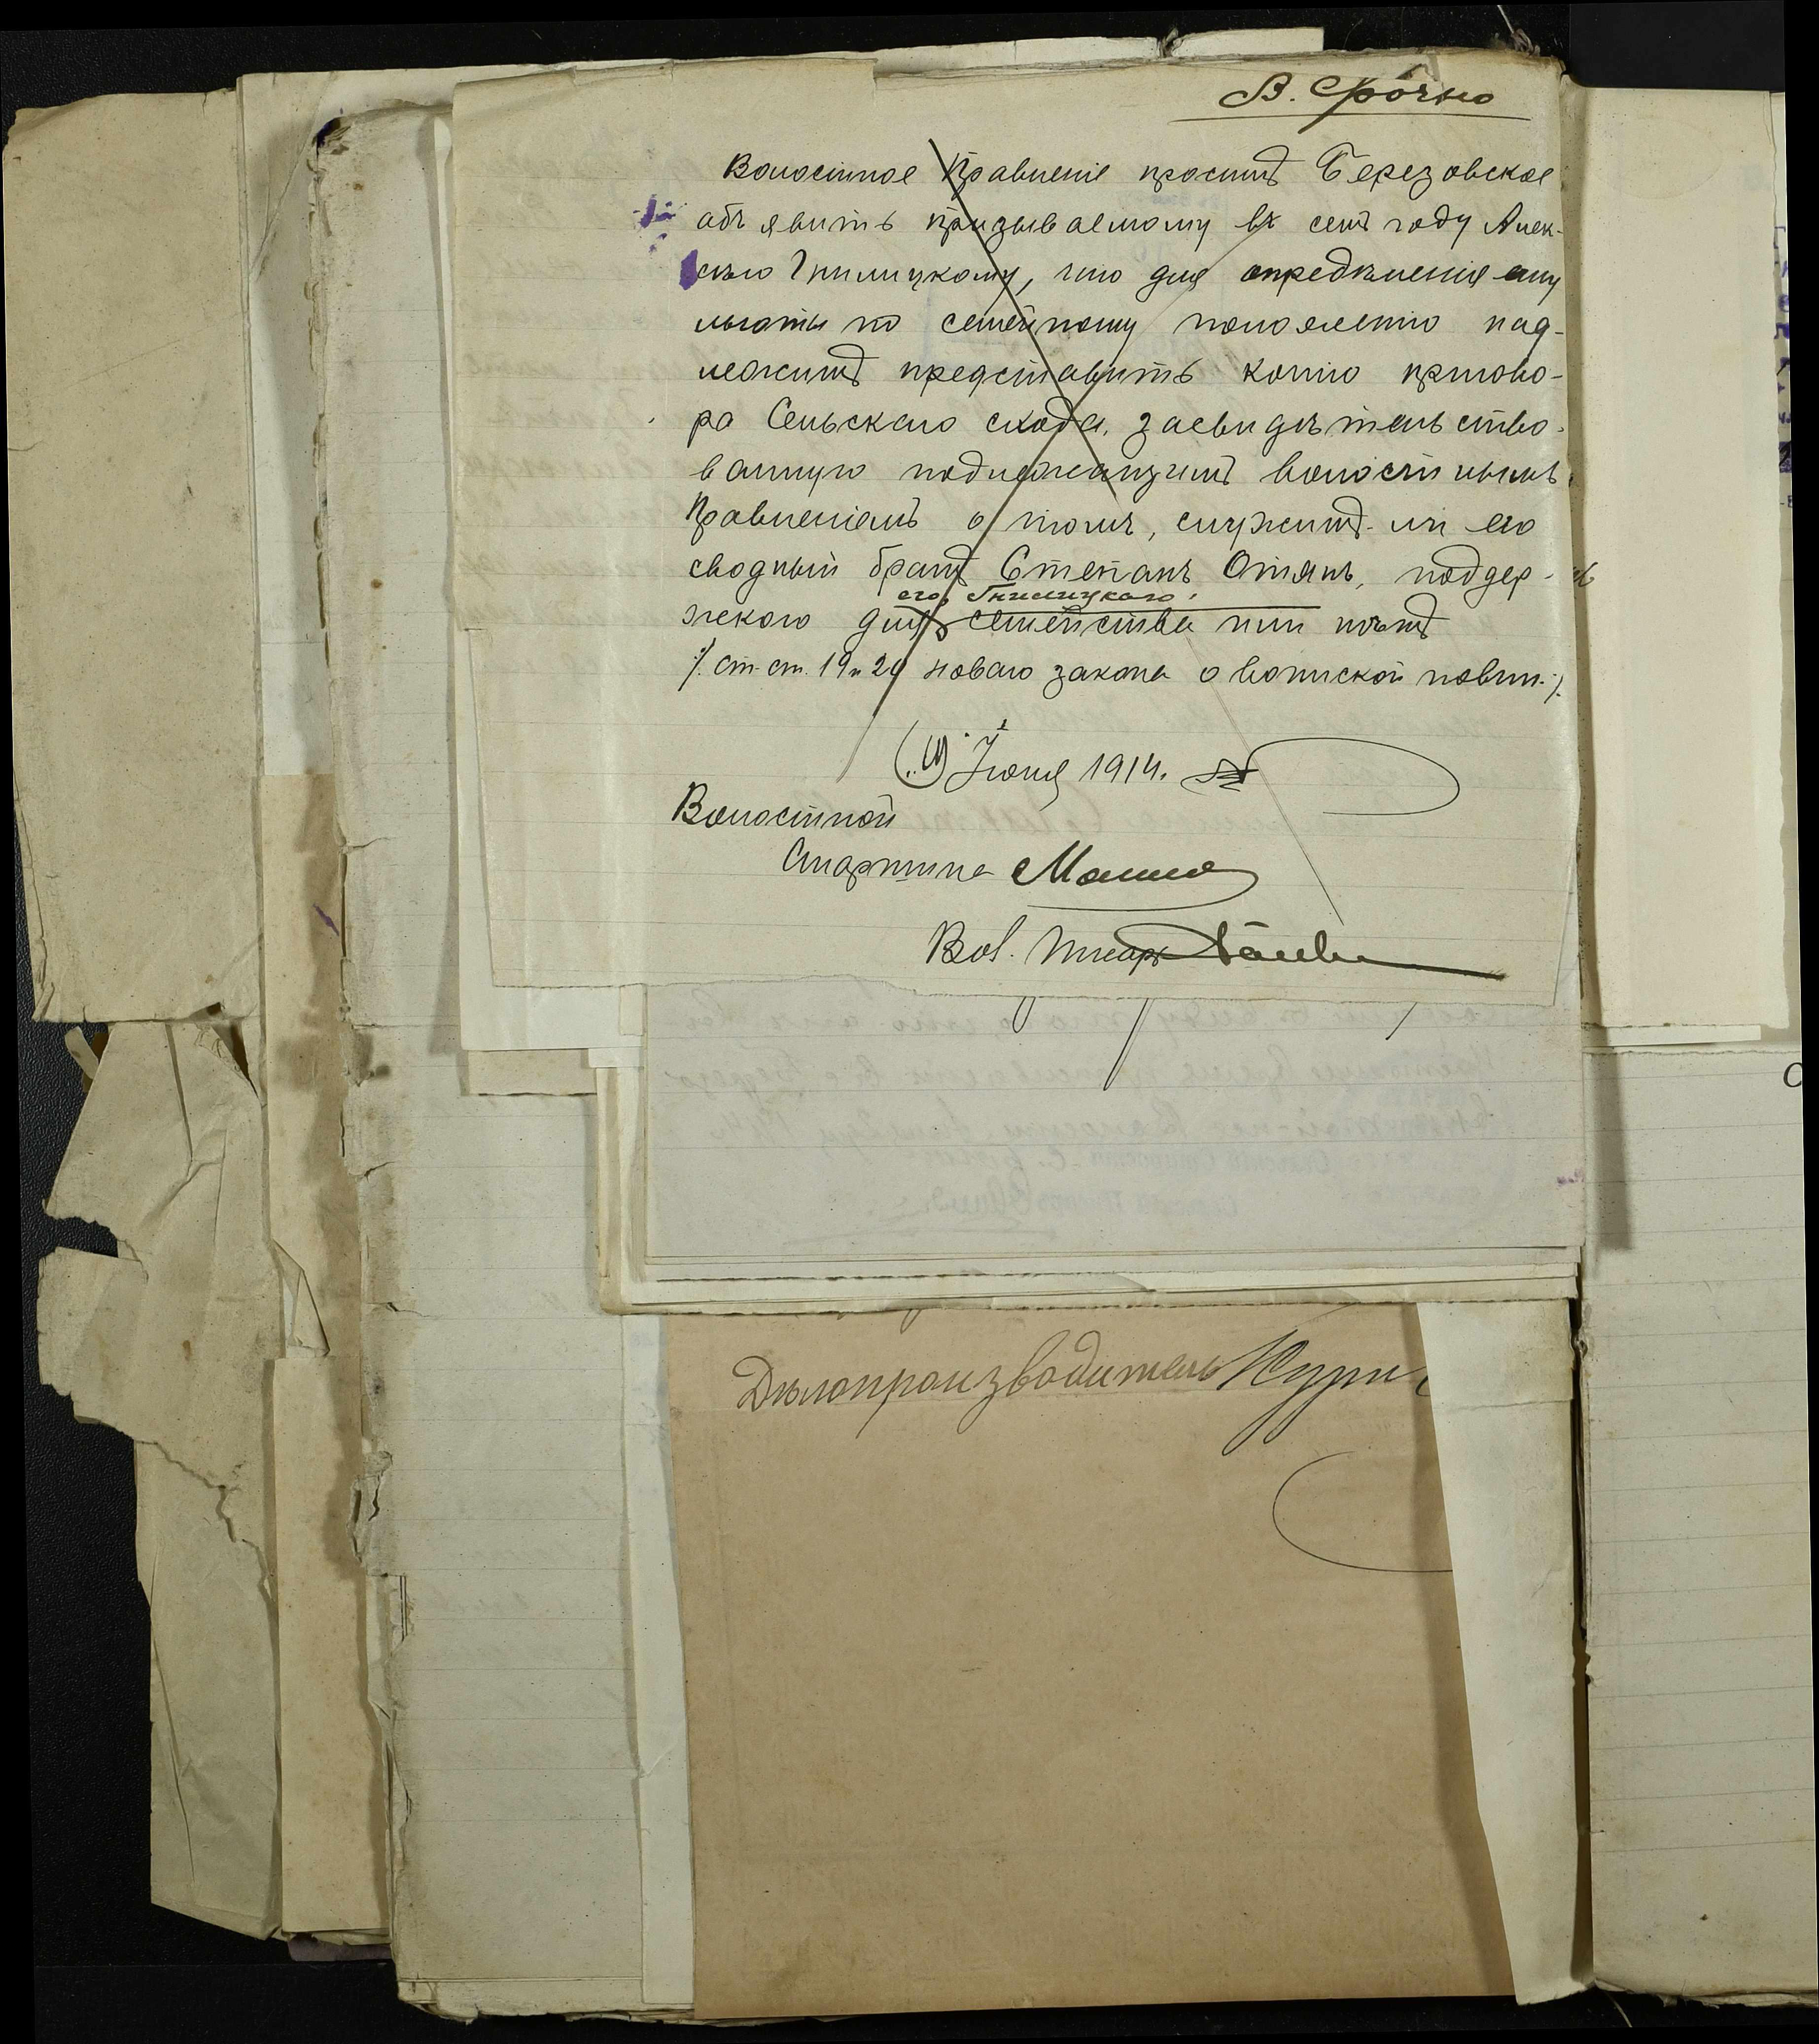 В. Срочно
Волостное Правленіе проситъ Березовское
объявить призываемому въ семъ году Алек-
сѣю Гнилицкому, что для опредѣленія ему
льготы по семейному положенію над-
лежитъ представить копію пригово-
ра Сельскаго схода, засвидѣтельство-
ванную подлежащимъ волостнымъ
Правленіемъ о томъ, служитъ-ли его
сводный братъ Степанъ Отянъ, поддер-
его, Гнилицкаго,
жкою для семейства или нѣтъ
/. ст. ст. 19 и 20 новаго закона о воинской повин. /.
Іюня 1914.
Волостной
Старшина
Вол. Писарь
Дѣлопроизводитель